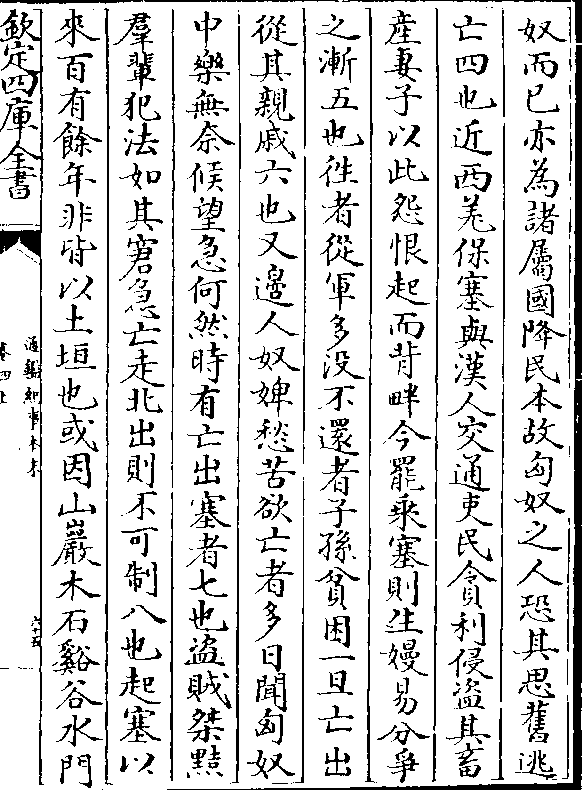 奴而已亦為諸屬國降民本故匈奴之人恐其思舊逃
亡四也近西羌保塞與漢人交通吏民貪利侵盗其畜
産妻子以此怨恨起而背畔今罷乗塞則生嫚易分爭
之漸五也徃者從軍多没不還者子孫貧困一旦亡出
從其親戚六也又邉人奴婢愁苦欲亡者多日聞匈奴
中樂無奈候望急何然時有亡出塞者七也盗賊桀黠
羣輩犯法如其窘急亡走北出則不可制八也起塞以
來百有餘年非皆以土垣也或因山巖木石谿谷水門
欽定四庫全書
通鑑紀事本末
卷四上
六十五